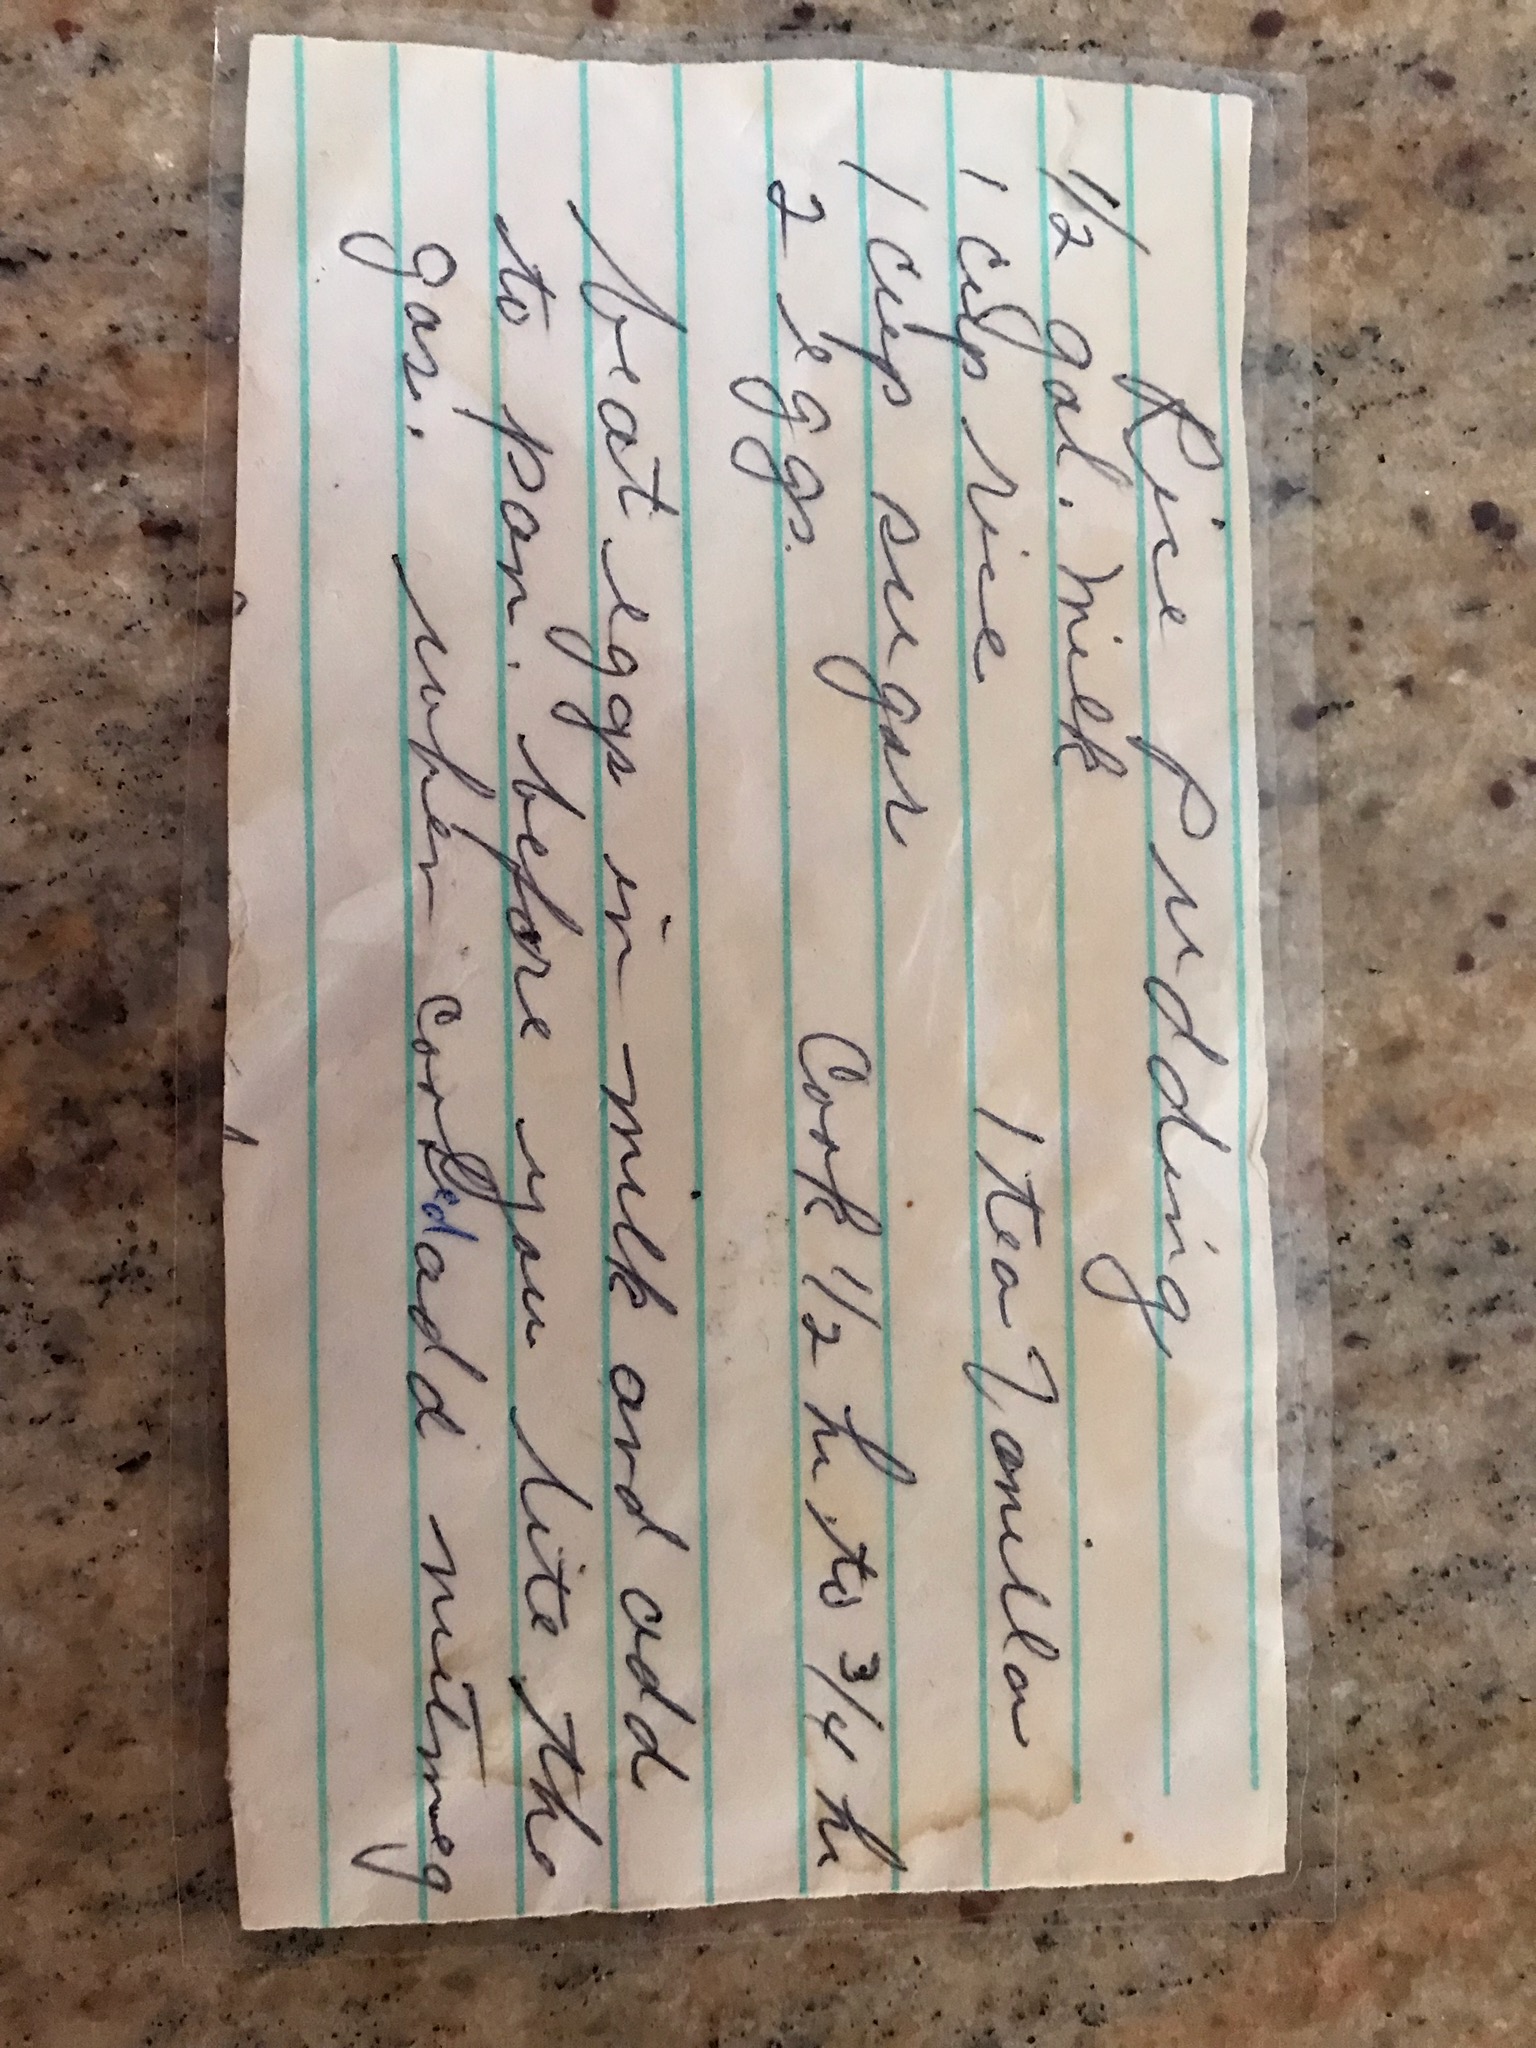 Rice Pudding
1/2 gal. milk
1 cup rice 1 tea Vanilla
1 cup sugar
2 eggs. Cook 1/2 hr to 3/4 hr
beat eggs in milk and add
to pan. before you lite the
gas. when cooked add nutmeg